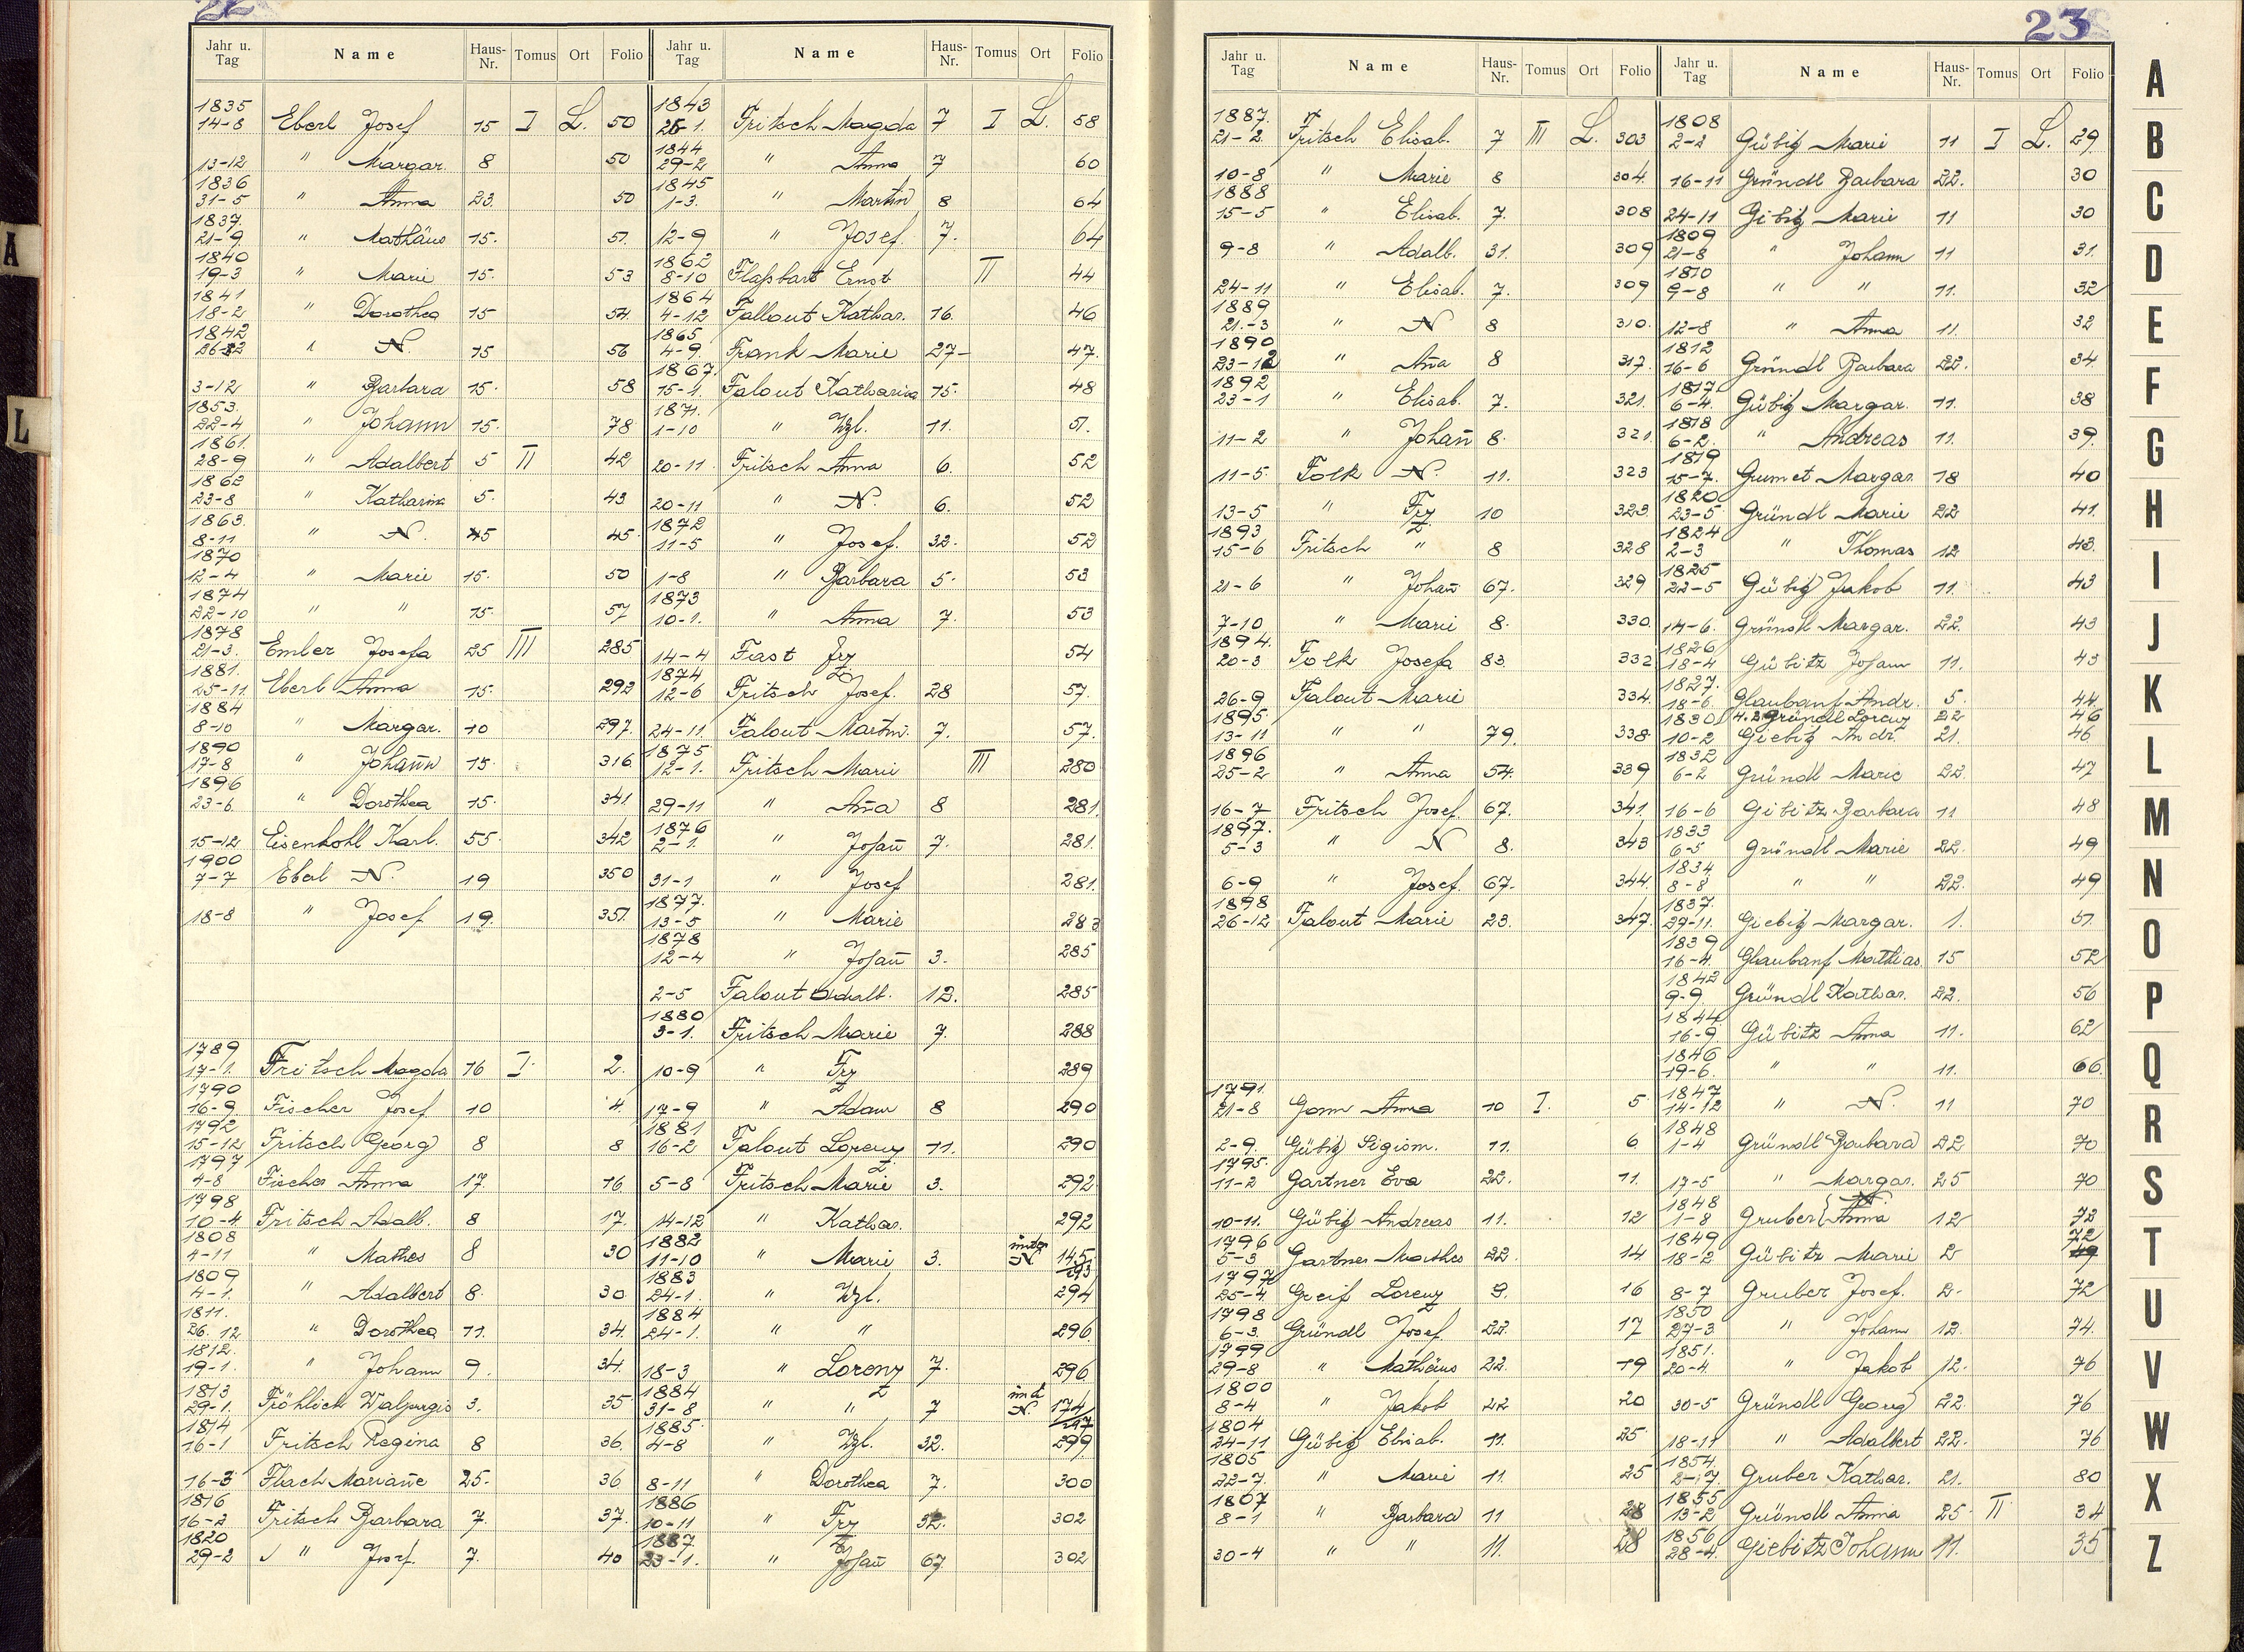 22
Jahr u. Tag Name Haus-Nr. Tomus Ort Folio
1835
14-8 Eberl Josef 15 I L. 50
13-12 " Margar. 8 50
1836
31-5 " Anna 23. 50
1837.
21-9. " Mathäus 15. 51.
1840
19-3 " Marie 15. 53
1841
18-2 " Dorothea 15 54.
1842
" N. 15 56
3-12 " Barbara 15. 58
1853.
22-4 " Johann 15. 78
1861.
28-9 " Adalbert 5 II 42
1862
23-8 " Katharina 5. 43
1863.
8-11 " N. 45.
1870
12-4 " Marie 15. 50
1874
22-10 " " 15. 57
1878
21-3. Ember Josefa 25 III 285
1881.
25-11. Eberl Anna 15. 292
1884
8-10 " Margar. 10 297.
1890
17-8 " Johann 15. 316
1896
23-6. " Dorothea 15. 341
15-12 Eisenkohl Karl. 55 342
1900
7-7 Eberl N. 19 350
18-8 " Josef 19. 351.
1789
17-1. Fritsch Magda 16 I. 2.
1790
16-9. Fischer Josef 10 4.
1792
15-12 Fritsch Georg 8 8
1797
4-8 Fischer Anna 17. 16
1798
10-4. Fritsch Adalb. 8 17.
1808
4-11 " Mathes 8 30
1809
4-1. " Adalbert 8. 30
1811.
26. 12 " Dorothea 11. 34.
1812.
19-1. " Johann 9. 34.
1813
29-1. Fröhlich Walpurgis 3. 35
1814
16-1 Fritsch Regina 8 36.
16-3 Flach Mariañe 25. 36
1816
16-2 Fritsch Barbara 7. 37.
1820
29-2 " Josef. 7. 40
Jahr u. Tag Name Haus-Nr. Tomus Ort Folio
1843
1. Fritsch Magda 7 I L. 58
1844
29-2 " Anna 7 60
1845
1-3. " Martin 8 64
12-9 " Josef. 7. 64
1862
8-10 Flaßbart Ernst II 44
1864
4-12 Fallout Kathar. 16. 46
1865
4-9. Frank Marie 27- 47.
1867.
15-1. Falout Katharina 15. 48
1871.
1-10 " Wzl. 11. 51.
20-11. Fritsch Anna 6. 52
20-11 " N. 6. 52
1872
11-5 " Josef. 32. 52
1-8 " Barbara 5. 53
1873
10-1. " Anna 7. 53
14-4 Fast Frz 54
1874
12-6 Fritsch Josef. 28 57.
24-11. Falout Martin. 7. 57.
1875
12-1. Fritsch Marie III 280
29-11 " Aña 8 281.
1876
2-1. " Johañ 7. 281.
31-1 " Josef 281.
1877.
13-5 " Marie 283
1878
12-4 " Johañ 3. 285
2-5 Falout Adalb. 12. 285
1880
3-1. Fritsch Marie 7. 288
10-9 " Frz 289
17-9 " Adam 8 290
1881
16-2 Falout Lorenz 11. 290
5-8 Fritsch Marie 3. 292
14-12 " Kathar. 292
1882
11-10 " Marie 3. N 145 293
1883
24-1. " Wzl. 294
1884
24-1. " " 296
18-3 " Lorenz 7. 296
1884
31-8 " " 7 N. 174
1885.
4-8 " Wzl. 32. 299
8-11 " Dorothea 7. 300
1886
10-11 " Frz 32. 302
1887.
23-1. " Johañ 67 302
23
Jahr u. Tag Name Haus-Nr. Tomus Ort Folio
1887.
21-2. Fritsch Elisab. 7 III L. 303
10-8 " Marie 8 304.
1888
15-5 " Elisab. 7. 308
9-8 " Adalb. 31. 309
24-11 " Elisab. 7. 309
1889
21.-3 " N 8 310.
1890
" Aña 8 317.
1892
23-1 " Elisab. 7. 321.
11-2 " Johañ 8. 321.
11-5 Folk N. 11. 323
13-5 " Frz 10 323.
1893
15-6 Fritsch " 8 328
21-6 " Johañ 67. 329
7-10 " Marie 8. 330.
1894.
20-3 Folk Josefa 83. 332
26-9 Falout Marie 334.
1895.
13-11 " " 79. 338.
1896
25-2 " Anna 54. 339
16-7 Fritsch Josef. 67. 341.
1897.
5-3 " N 8. 343
6-9 " Josef. 67. 344.
1898
26-12 Falout Marie 23. 347.
1791.
21-8 Gom Anna 10 I. 5
2-9. Gübitz Sigism. 11. 6
1795.
11-2 Gartner Eva 22. 11.
10-11. Gübitz Andreas 11. 12
1796
5-3 Gartner Mathes 22. 14
1797
25-4. Greif Lorenz 9. 16
1798
6-3. Gründl Josef. 22. 17
1799
29-8 " Mathäus 22. 19
1800
8-4 " Jakob 22 20
1804
24-11 Gübitz Elisab. 11. 25
1805
22-7. " Marie 11. 25
1807
8-1 " Barbara 11 28
30-4 " " 11. 28
Jahr u. Tag Name Haus-Nr. Tomus Ort Folio
1808
2-2 Gübitz Marie 11 I L. 29
16-11 Gründl Barbara 22. 30
24-11 Gibitz Marie 11 30
1809
21-8 " Johann 11 31.
1810
9-8 " " 11. 32
12-8 " Anna 11. 32
1812
16-6 Gründl Barbara 22. 34.
1817.
6-4. Gübitz Margar. 11. 38
1818
6-2. " Andreas 11. 39.
1819
15-7. Gumet Margar. 18 40
1820
23-5 Gründl Marie 22 41.
1824
2-3 " Thomas 12 43.
1825
22-5 Gübitz Jakob 11. 43
14-6. Gründl Margar. 22. 43
1826
18-4 Gübitz Johann 11. 43
1827.
18-6. Glaubauf Andr. 5. 44.
1830 4.2 Gründl Lorenz 22 46
10-2 Giebitz Andr. 21. 46
1832
6-2 Gründl Marie 22. 47
16-6 Gibitz Barbara 11 48
1833
6-5 Gründl Marie 22. 49
1834
8-8 " " 22. 49
1837.
27-11. Giebitz Margar. 1. 51.
1839
16-4. Glaubauf Mathias. 15 52
1842
9-9. Gründl Kathar. 22. 56
1844
16-9. Gübitz Anna 11. 62
1846
19-6. " " 11. 66.
1847
14-12 " N. 11 70
1848
1-4 Gründl Barbara 22 70
17-5 " Margar. 25 70
1848
1-8 Gruber N. Anna 12 72
1849
18-2 Gübitz Marie 2 72
8-7 Gruber Josef. 2. 72
1850
27-3 " Johann 12. 74.
1851.
20-4. " Jakob 12. 76
30-5 Gründl Georg 22. 76
18-11 " Adalbert 22. 76
1854.
2-17. Gruber Kathar. 21. 80
1855
13-2 Gründl Anna 25 II 34
1856
28-4. Giebitz Johann 11. 35
A
B
C
D
E
F
G
H
I
J
K
L
M
N
O
P
Q
R
S
T
U
V
W
X
Z
A
L